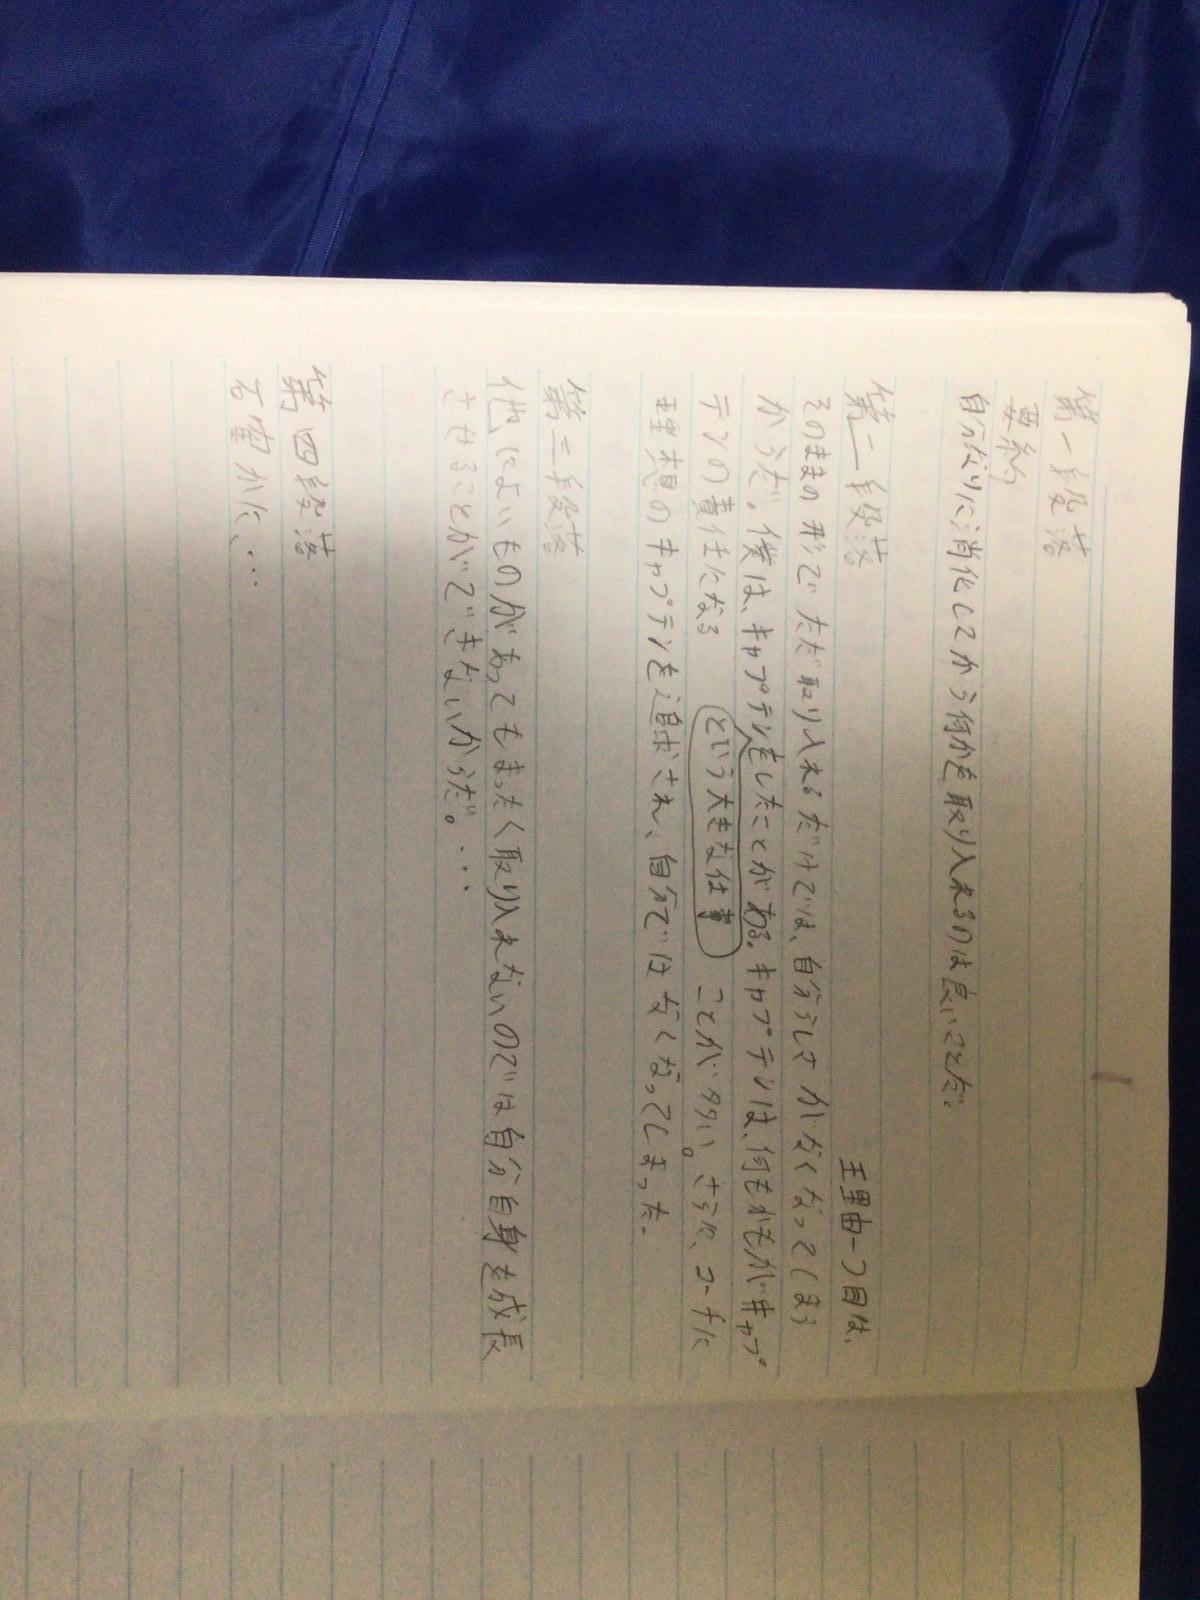 第一段落
要約
自分なりに消化してから何かを取り入れるのは良いことだ。
第二段落
理由一つ目は、
そのままの形でただ取り入れるだけでは、自分らしさがなくなってしまう
からだ。僕は、キャプテンをしたことがある。キャプテンは、何もかもがキャプ
テンの責任になる
という大きな仕事
ことが多い。さらに、コーチに
理想のキャプテンを追求され、自分ではなくなってしまった。
第三段落
他によいものがあってもまったく取り入れないのでは自分自身を成長
させることができないからだ。…
第四段落
右確かに、…